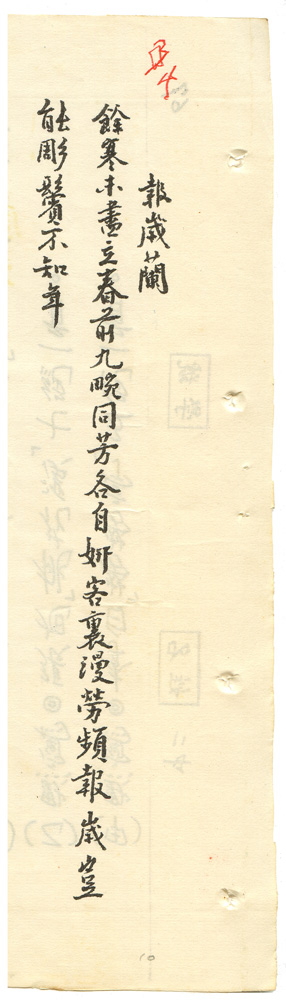 報歲蘭
餘寒未盡立春前九畹同芳各自妍客裏漫勞頻報歲豈
能彫鬢不知年
10